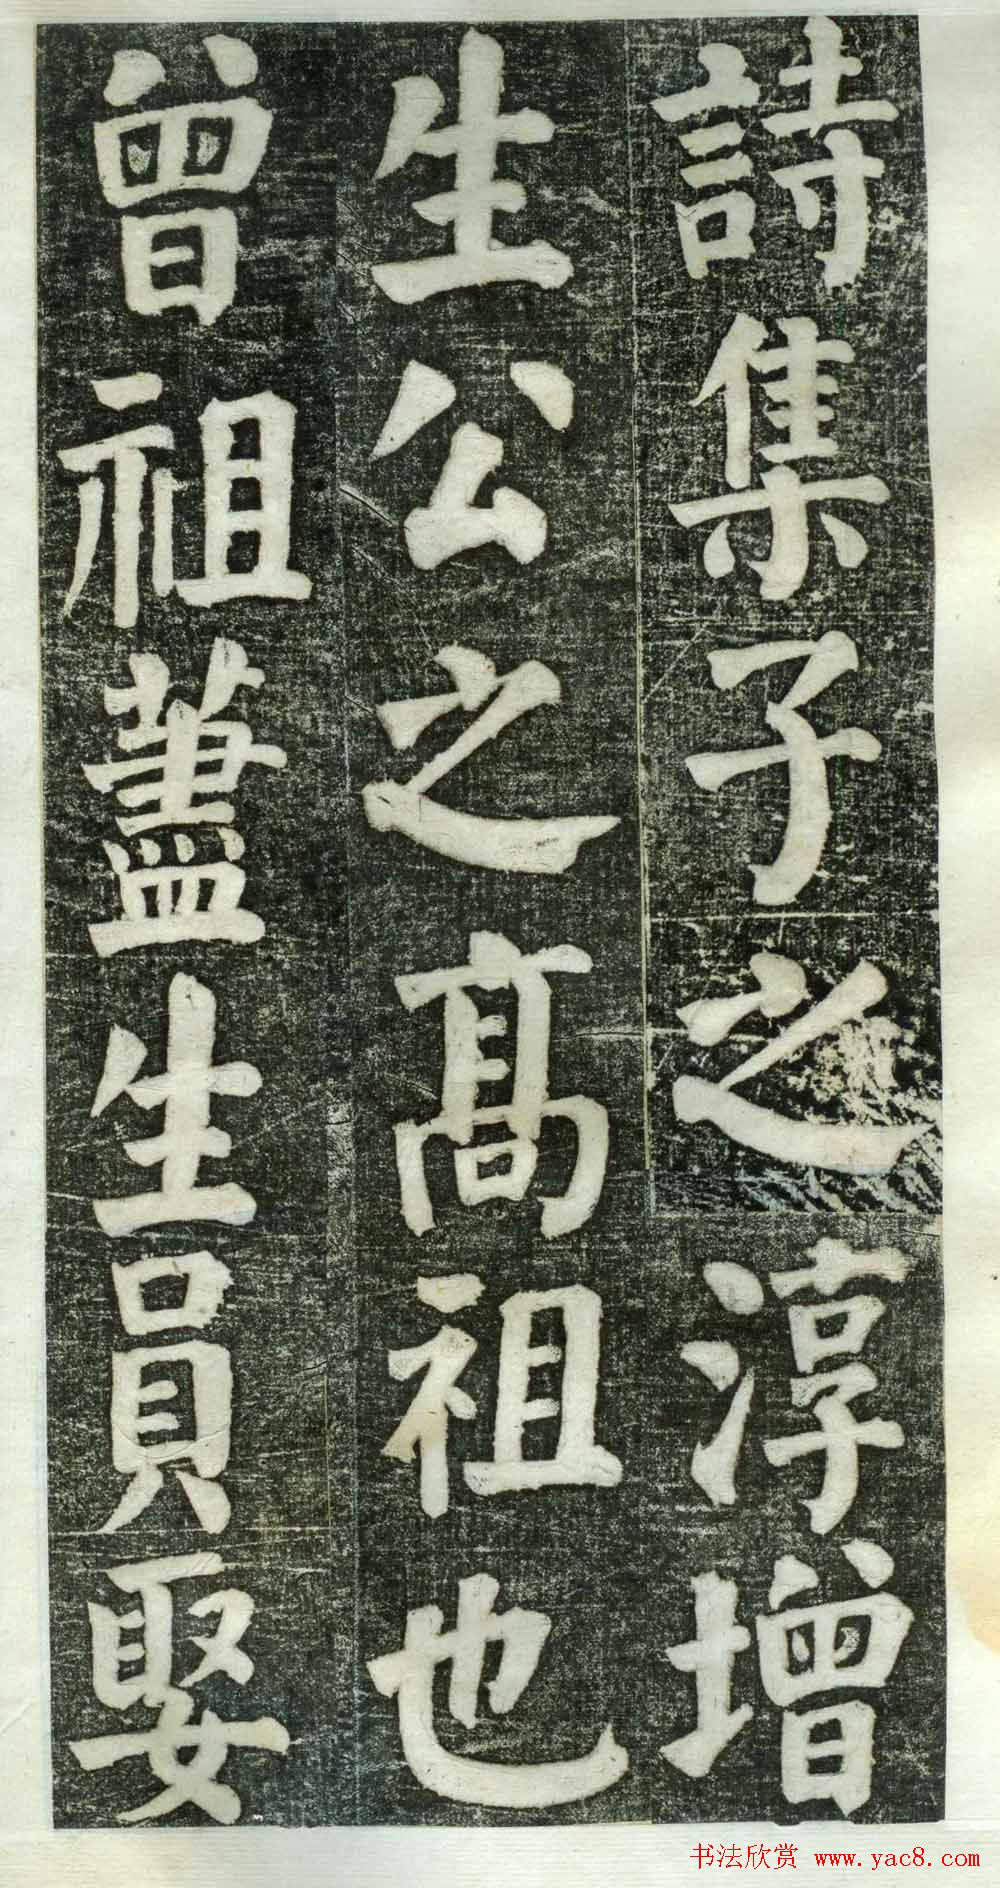 詩集子之淳增
生公之髙祖也
曾祖藎生員娶
书法欣赏 www.yac8.com